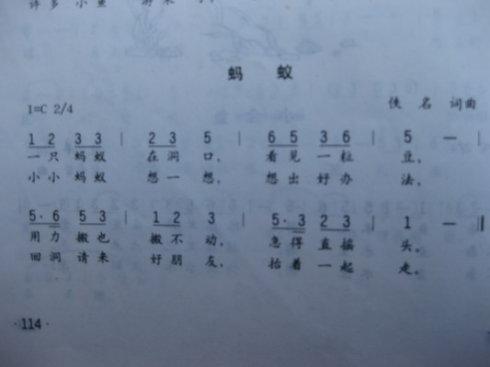 许多小鱼游来
蚂蚁
1=C 2/4
佚名 词曲
1 2 3 3 | 2 3 5 | 6 5 3 6 | 5 — |
一只 蚂蚁 在洞 口, 看见 一粒 豆,
小小 蚂蚁 想一 想, 想出 好办 法,
5· 6 5 3 | 1 2 3 | 5· 3 2 3 | 1 — ‖
用力 搬也 搬不 动, 急得 直摇 头,
回洞 请来 好朋 友, 抬着 一起 走。
·114·